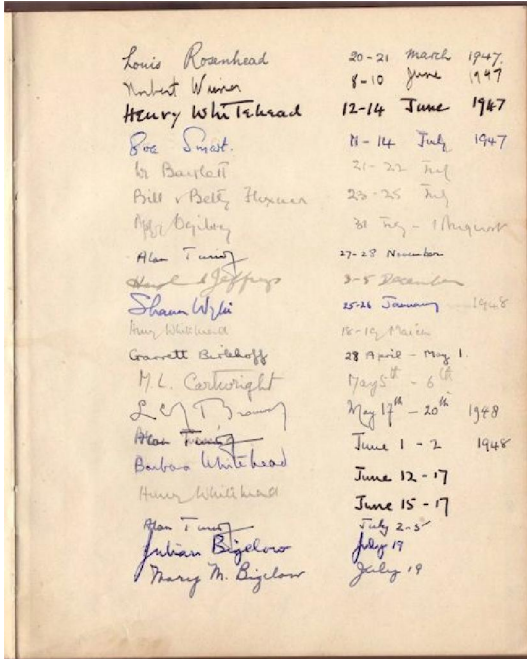 Louis Rosenhead 20-21 March 1947.
Norbert Wiener 8-10 June 1947
Henry Whitehead 12-14 June 1947
Smart. 11-14 July 1947
Bartlett 21-22 July
Bill & Betty Flexner 23-25 July
Ogilvy 31 July - 1 August
Alan Turing 27-28 November
Harold Jeffreys 3-5 December
Shaun Wylie 25-26 January 1948
Henry Whitehead 18-19 March
Garrett Birkhoff 28 April - May 1.
M.L. Cartwright May 5th - 6th
May 17th - 20th 1948
Alan Turing June 1 - 2 1948
Barbara Whitehead June 12 - 17
Henry Whitehead June 15 - 17
Alan Turing July 2-5
Julian Bigelow July 19
Mary M. Bigelow July 19